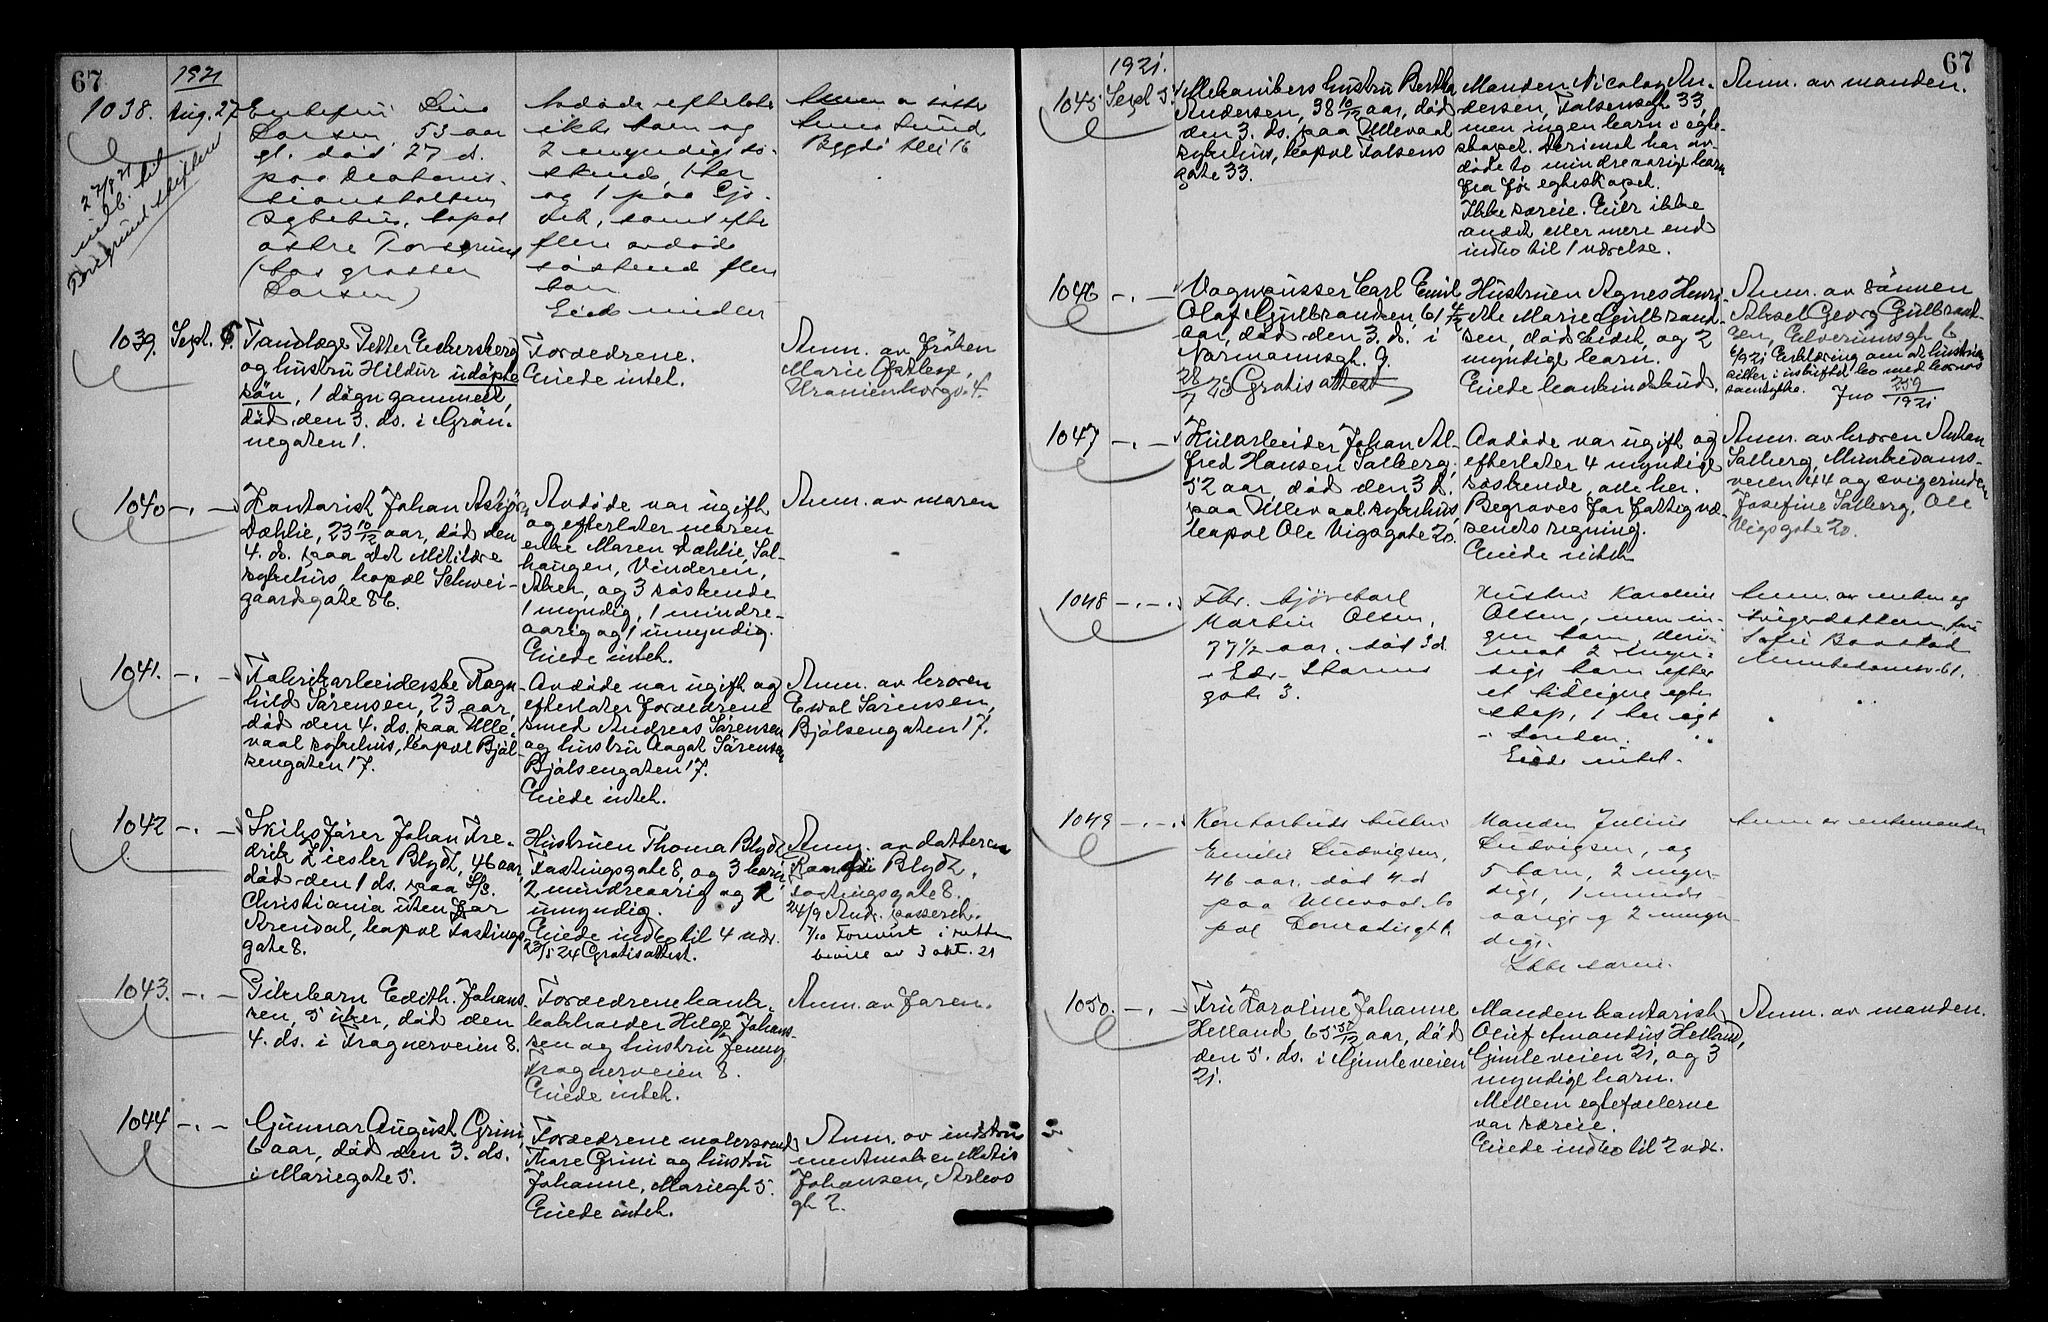 67
1921
1038.
Aug. 27
Enkefru Lina
Larsen 53 aar
gl. död 27 d.
paa Diakonis-
seanstaltens
sykehus, bopæl
östre Porsgrund
(hos grosser
Larsen)
27/9 21
medd. til
Porsgrund skifteret
Avdöde efterlot
ikke barn og
2 myndige sö-
skende 1 her
og 1 paa Gjö-
vik, samt efter
flere avdöde
söskend flere
barn
Eied midler
Anm. av
Lund
Bygdö Allé 16
1039.
Sept. 5
Tandlæge Petter Eckersberg
og hustru Hildur udöpte
sön, 1 dögn gammel,
död den 3. ds. i Grön-
negaten 1.
Forældrene.
Eiede intet.
Anm. av Fröken
Marie
Uranienborgv. 4.
1040 -.-
Kontorist Johan Asbjörn
Dæhlie, 23 10/12 aar, död den
4. ds. paa Det Militære
sykehus, bopæl Schwei-
gaardsgate 86.
Avdöde var ugift
og efterlater moren
enke Maren Dæhlie, Sol-
haugen, Vinderen,
Aker, og 3 söskende
1 myndig, 1 mindre-
aarig og 1 umyndig.
Eiede intet.
Anm. av moren
1041. -.-
Fabrikarbeiderske Ragn-
hild Sörensen, 23 aar,
död den 4. ds. paa Ulle-
vaal sykehus, bopæl Bjöl-
sengaten 17.
Avdöde var ugift og
efterlater forældrene
smed Andreas Sörensen
og hustru Aagot Sörensen
Bjölsengaten 17.
Eiede intet.
Anm. av broren
Ewal Sörensen,
Bjölsengaten 17.
1042 -.-
Skibsförer Johan Fre-
drik Ziesler Blydt, 46 aar,
död den 1 ds. paa S/S.
Christiania uten for
Arendal, bopæl Fastings-
gate 8.
Hustruen Thoma Blydt
Fastingsgate 8, og 3 barn,
2 mindreaarig og 1
umyndig.
Eiede indbo til 4 vær.
23/5 24 Gratisattest.
Anm. av datteren
Randi Blydt,
Fastingsgate 8.
24/9 Andr. passerch.
7/10 Forevist skifte
bevill av 3 okt. 21
1043. -.-
Pikebarn Edith Johans-
sen, 5 uker, död den
4. ds. i Frognerveien 8.
Forældrene bank-
bokholder Helge Johans-
sen og hustru Jenny
Frognerveien 8.
Eiede intet.
Anm. av faren.
1044 -.-
Gunnar August Grini,
6 aar, död den 3. ds.
i Mariegate 5.
Forældrene malersvend
Thore Grini og hustru
Johanne, Mariegt 5.
Eiede intet.
Anm. av instru
mentmaker
Johansen,
gt. 2.
1921.
67
1045 Sept 5.
Mekanikers hustru Bertha
Andersen, 38 10/12 aar, död
den 3. ds. paa Ullevaal
sykehus, bopæl Falsens
gate 33.
Manden Nicolay An-
dersen, Falsensgt 33,
men ingen barn i egte-
skapet. Derimot har av-
döde to mindreaarige barn
fra för egteskapet.
Ikke særeie. Eier ikke
andet eller mere end
indbo til 1 værelse.
Anm. av manden.
1046 -.-
Vognpusser Carl Emil
Olaf Gulbrandsen, 61 4/12
aar, död den 3. ds. i
Normannsgt. 9.
28/7 23 Gratisattest
Hustruen Agnes Henri-
ette Marie Gulbrand-
sen, död Eidet, og 2
myndige barn.
Eiede kun indbud.
Anm. av sönnen
Aksel Georg Gulbrand-
sen, Elverumsgt 6
6/9 21 Erklæring om at hustruen
sitter i uskiftet bo med barnas
samtykke. Jno 259/1921
1047 -.-
Kularbeider Johan Al-
fred Hansen Salberg,
52 aar, död den 3 d.
paa Ullevaal sykehus,
bopæl Ole Vigsgate 20.
Avdöde var ugift og
efterlater 4 myndige
söskende, alle her.
Begraves for fattigvæ-
senets regning.
Eiede intet.
Anm. av broren Anton
Salberg, Munkedams-
veien 44 og svigerinden
Josefine Salberg, Ole
Vigsgate 20.
1048 -.-.
Fhv. kjörekarl
Martin Olsen,
77 1/2 aar, död 3 d.
i Edv. Storms
gate 3.
Hustru Karoline
Olsen, men in-
gen barn, deri-
mot 2 myn-
dige barn efter
et tidligere egte
skap, 1 her og 1
i London.
Eied intet.
Anm. av enken og
svigerdatteren, fru
Sofie Baastad
Munkedamsv. 61.
1049 -.-.
Kontorbuds hustru
Emilie Ludvigsen,
46 aar, död 4 d
paa Ullevaal. bo
pæl Conradisgt 1.
Manden Julius
Ludvigsen, og
5 barn, 2 myn-
dige, 1 mindre
aarige og 2 umyn-
dige.
Ikke særeie.
Anm av enkemanden
1050. -.-
Fru Karoline Johanne
Helland 65 5/12 aar, död
den 5. ds. i Gimleveien
21.
Manden kontorist
Oluf Amandus Helland,
Gimleveien 21, og 3
myndige barn.
Mellem egtefællerne
var særeie.
Eiede indbo til 2 vær.
Anm. av manden.